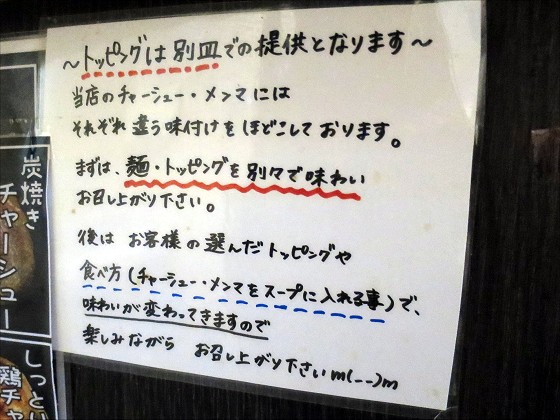 ～トッピングは別皿での提供となります～
当店のチャーシュー・メンマには
それぞれ違う味付けをほどこしております。
まずは、麺・トッピングを別々で味わい
お召し上がり下さい。
後は お客様の選んだトッピングや
食べ方(チャーシュー・メンマをスープに入れる事)で、
味わいが変わってきますので
楽しみながら お召し上がり下さいm(--)m
炭焼き
チャーシュー
しっとり
鶏チャ